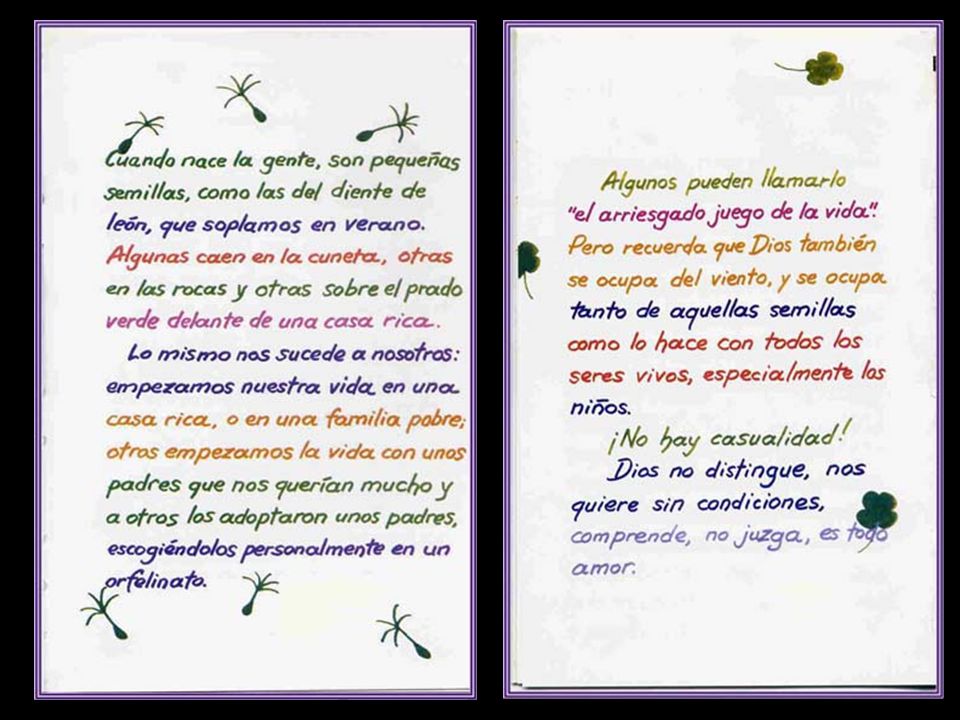 Cuando nace la gente, son pequeñas
semillas, como las del diente de
león, que soplamos en verano.
Algunas caen en la cuneta, otras
en las rocas y otras sobre el prado
verde delante de una casa rica.
Lo mismo nos sucede a nosotros:
empezamos nuestra vida en una
casa rica, o en una familia pobre;
otros empezamos la vida con unos
padres que nos querían mucho y
a otros los adoptaron unos padres,
escogiéndolos personalmente en un
orfelinato.
Algunos pueden llamarlo
"el arriesgado juego de la vida".
Pero recuerda que Dios también
se ocupa del viento, y se ocupa
tanto de aquellas semillas
como lo hace con todos los
seres vivos, especialmente los
niños.
¡No hay casualidad!
Dios no distingue, nos
quiere sin condiciones,
comprende, no juzga, es todo
amor.